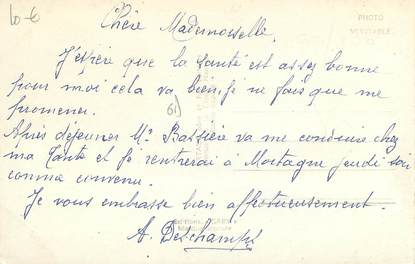 10-€
Chère Mademoiselle.
PHOTO
VERITABLE
J'espère que la santé est assez bonne
pour moi cela va bien, je ne fais que me
promener.
61
Après dejeuner Mr Bassière va me conduire chez
ma tante et je rentrerai à Mortagne jeudi soir
comme convenu.
Je vous embrasse bien affectueusement.
A. Deschamps